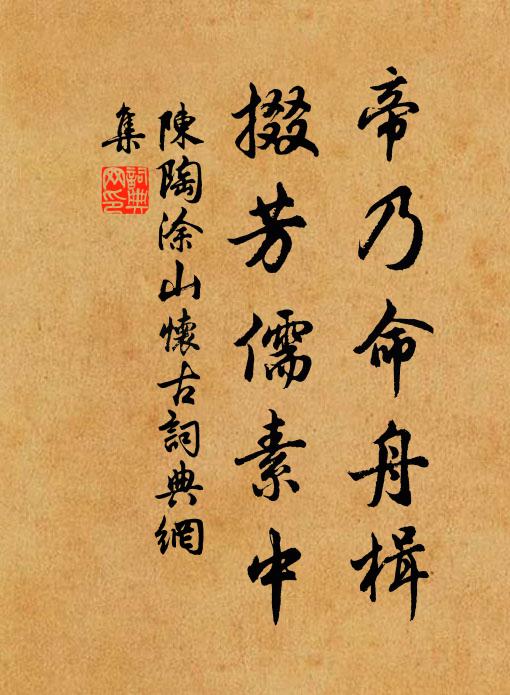 帝乃命舟楫
掇芳儒素中
陳陶涂山懷古詞典網
集
詞典
网印